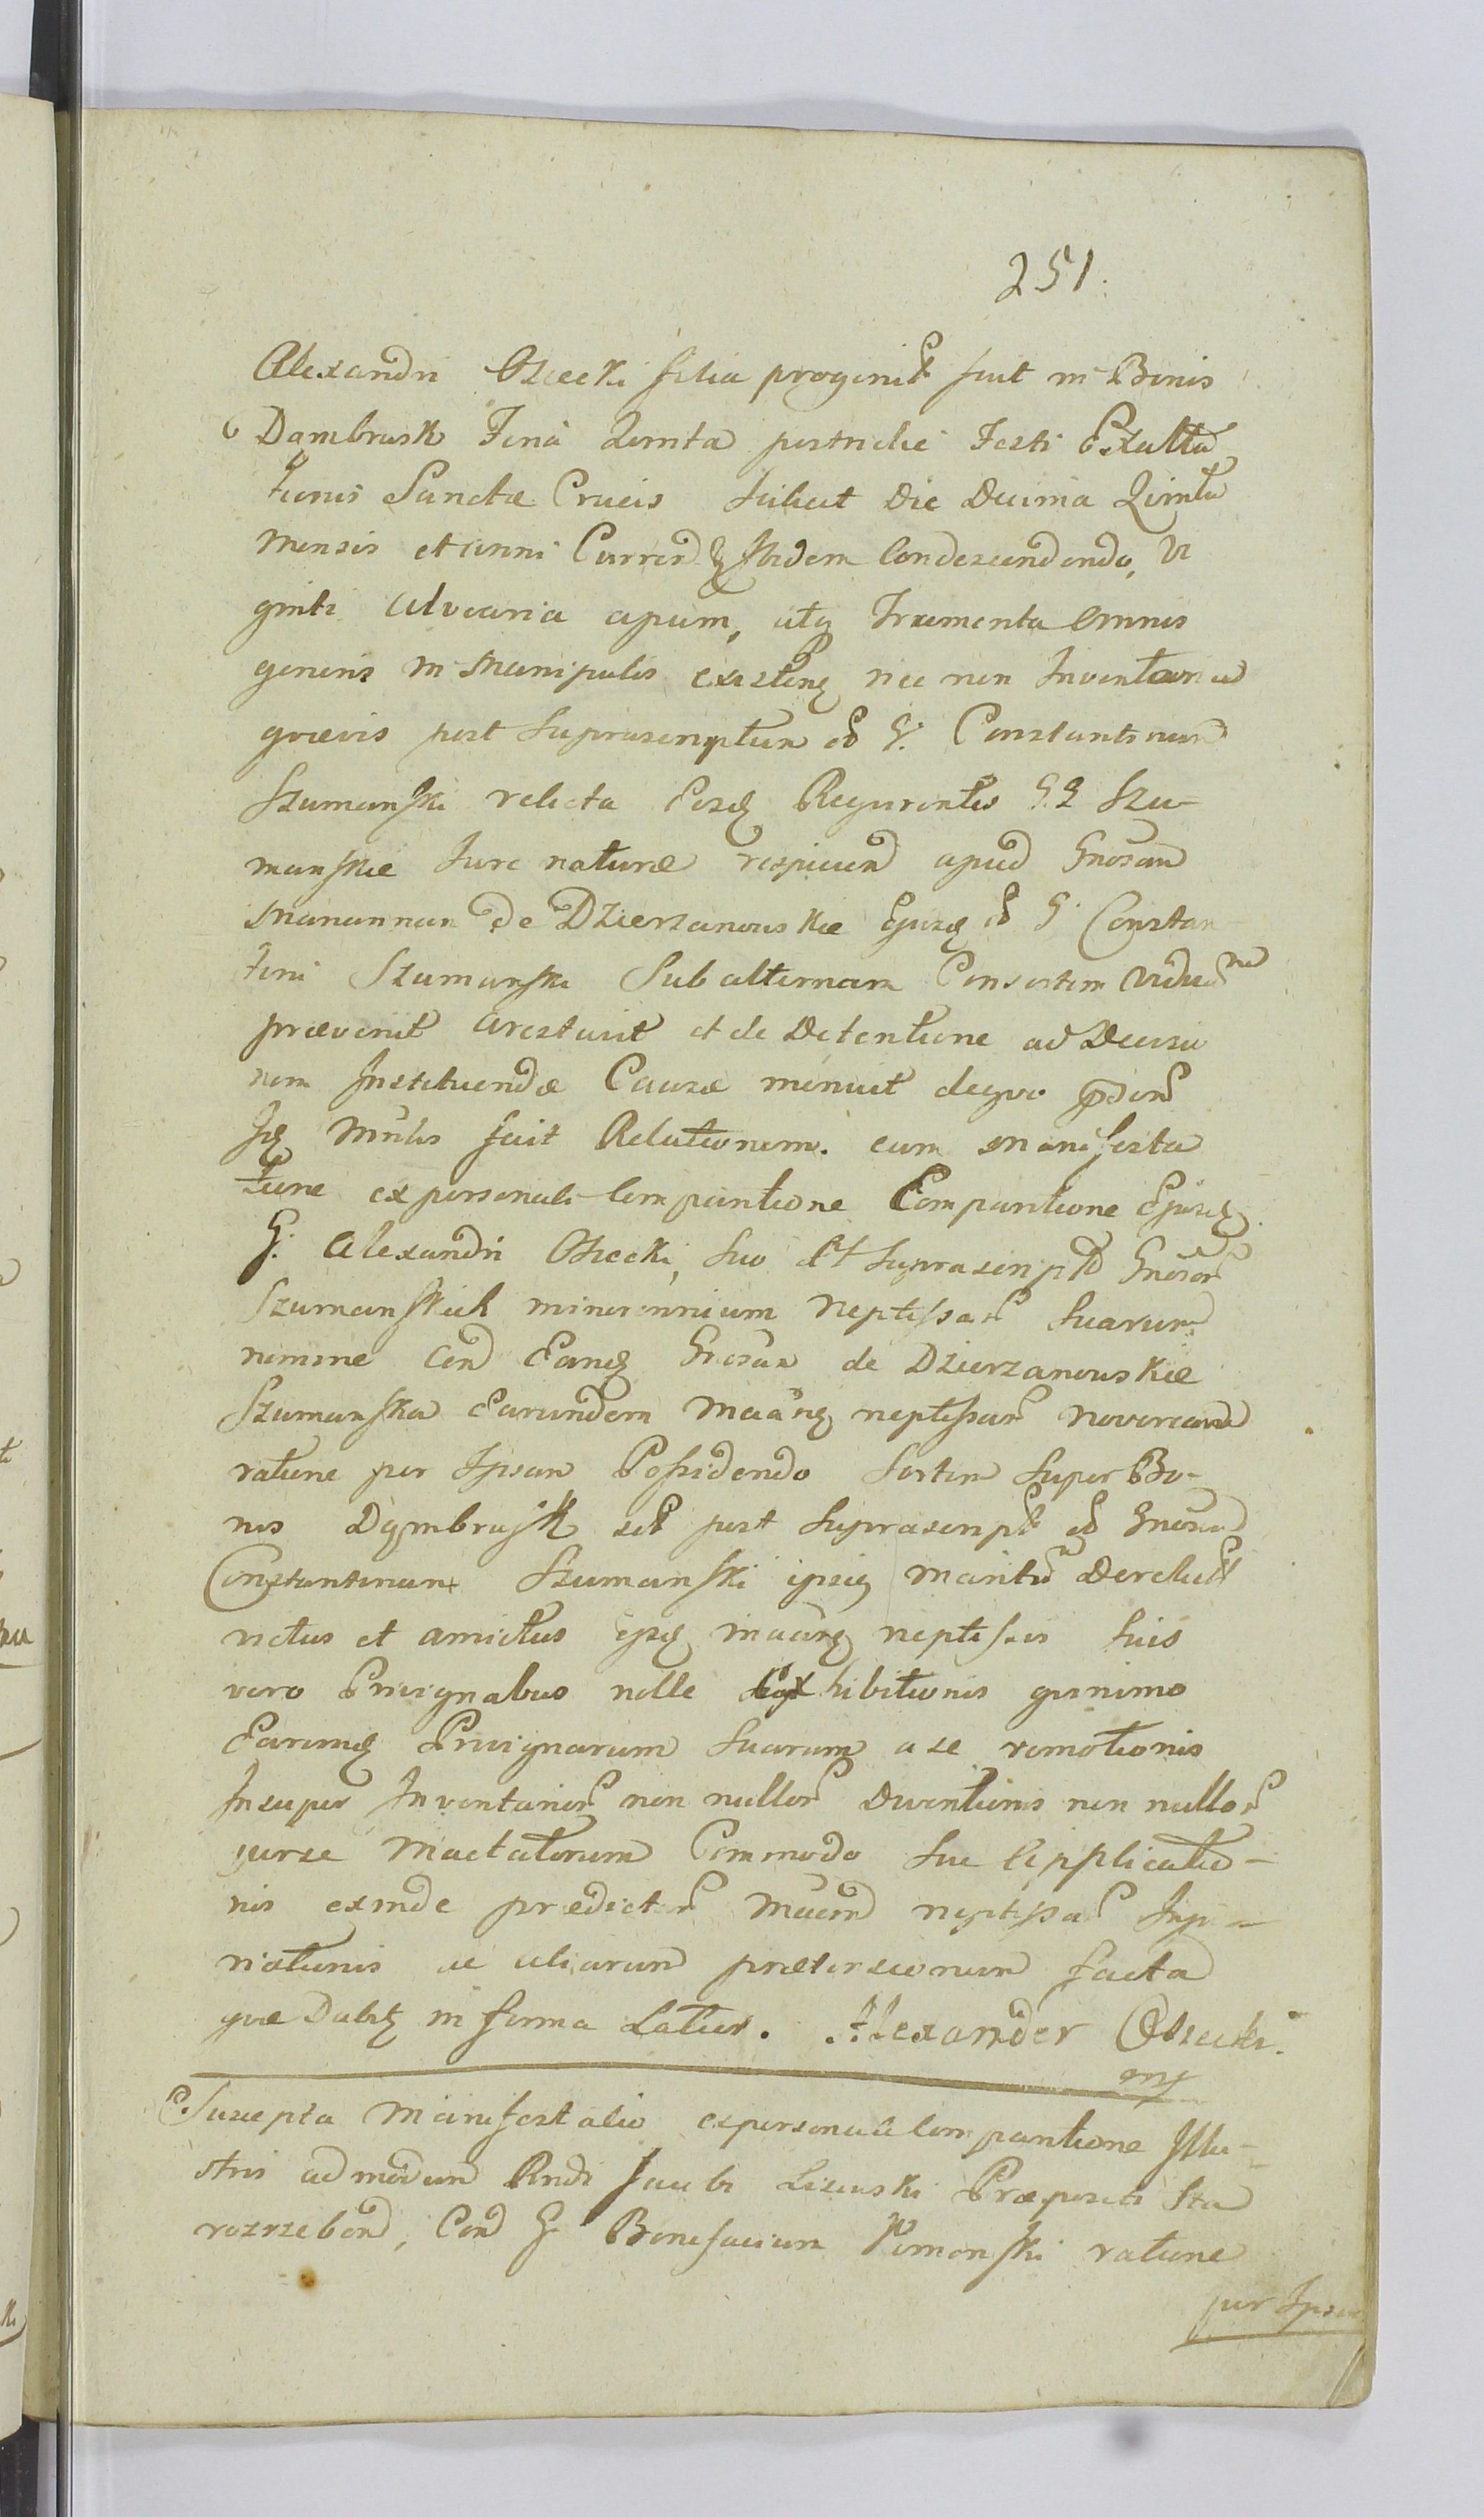 251.
Alexandri Osiecki filia proginit fuit in Bonis
Dambrusk Feria Quinta postridie Festi Exalta
tionis Sanctæ Crucis scilicet Die Decima Quinta
Mensis et anni Current Ibidem Condescendendo, Vi
ginti alvearia apum, atq Frumenta omnis
generis in Manipulis existen nec non Inventaria
quævis post Suprascriptum G. Constantinum
Szumanski relicta Szu-
manskie Jure naturæ respicien apud Gnosam
Mariannam de Dzierzanowskie Ejusd G Constan
tini Szumanski Subalternam Consortem Viduam
prævenit arestavit et de Detentione ad Decisio
nem Instituendæ Causæ monuit dequo
Idq Mnlis fecit Relationem. cum Manifesta
tione ex personali Comparitione Comparitione Ejusd
G. Alexandri Osiecki, suo et Suprascript Gnosar
Szumanskich minorennium Neptissar Suarum
nomine Con Eand Gnosam de Dzierzanowskie
Szumanska Earundem neptissar Novercam
ratione per Ipsam Possidendo Sortem Super Bo-
nis Dymbrusk post Suprascript Gnosum
Constantinum Szumanski ipsiq Maritum Derelict
victus et amictus neptissis suis
vero Privignabus nolle Exhibitionis quinimo
Earumq Privignarum Suarum a se remotionis
Insuper Inventarior non nullor Divention non nullor
per se Mactatorum Commodo suo applicatio-
nis exinde prædictar neptissar Inju-
riationis ac aliarum prætensionum facta
quæ Dabit in forma Latius. Alexander Osiecki.
mp
Suscepta Manifestatio ex personali Comparitione Illu-
stris admodum Rndi Jacobi Lisieski Præpositi Sta
rozrzebon, Con G Bonifacium Pomonski ratione
per Ipsum